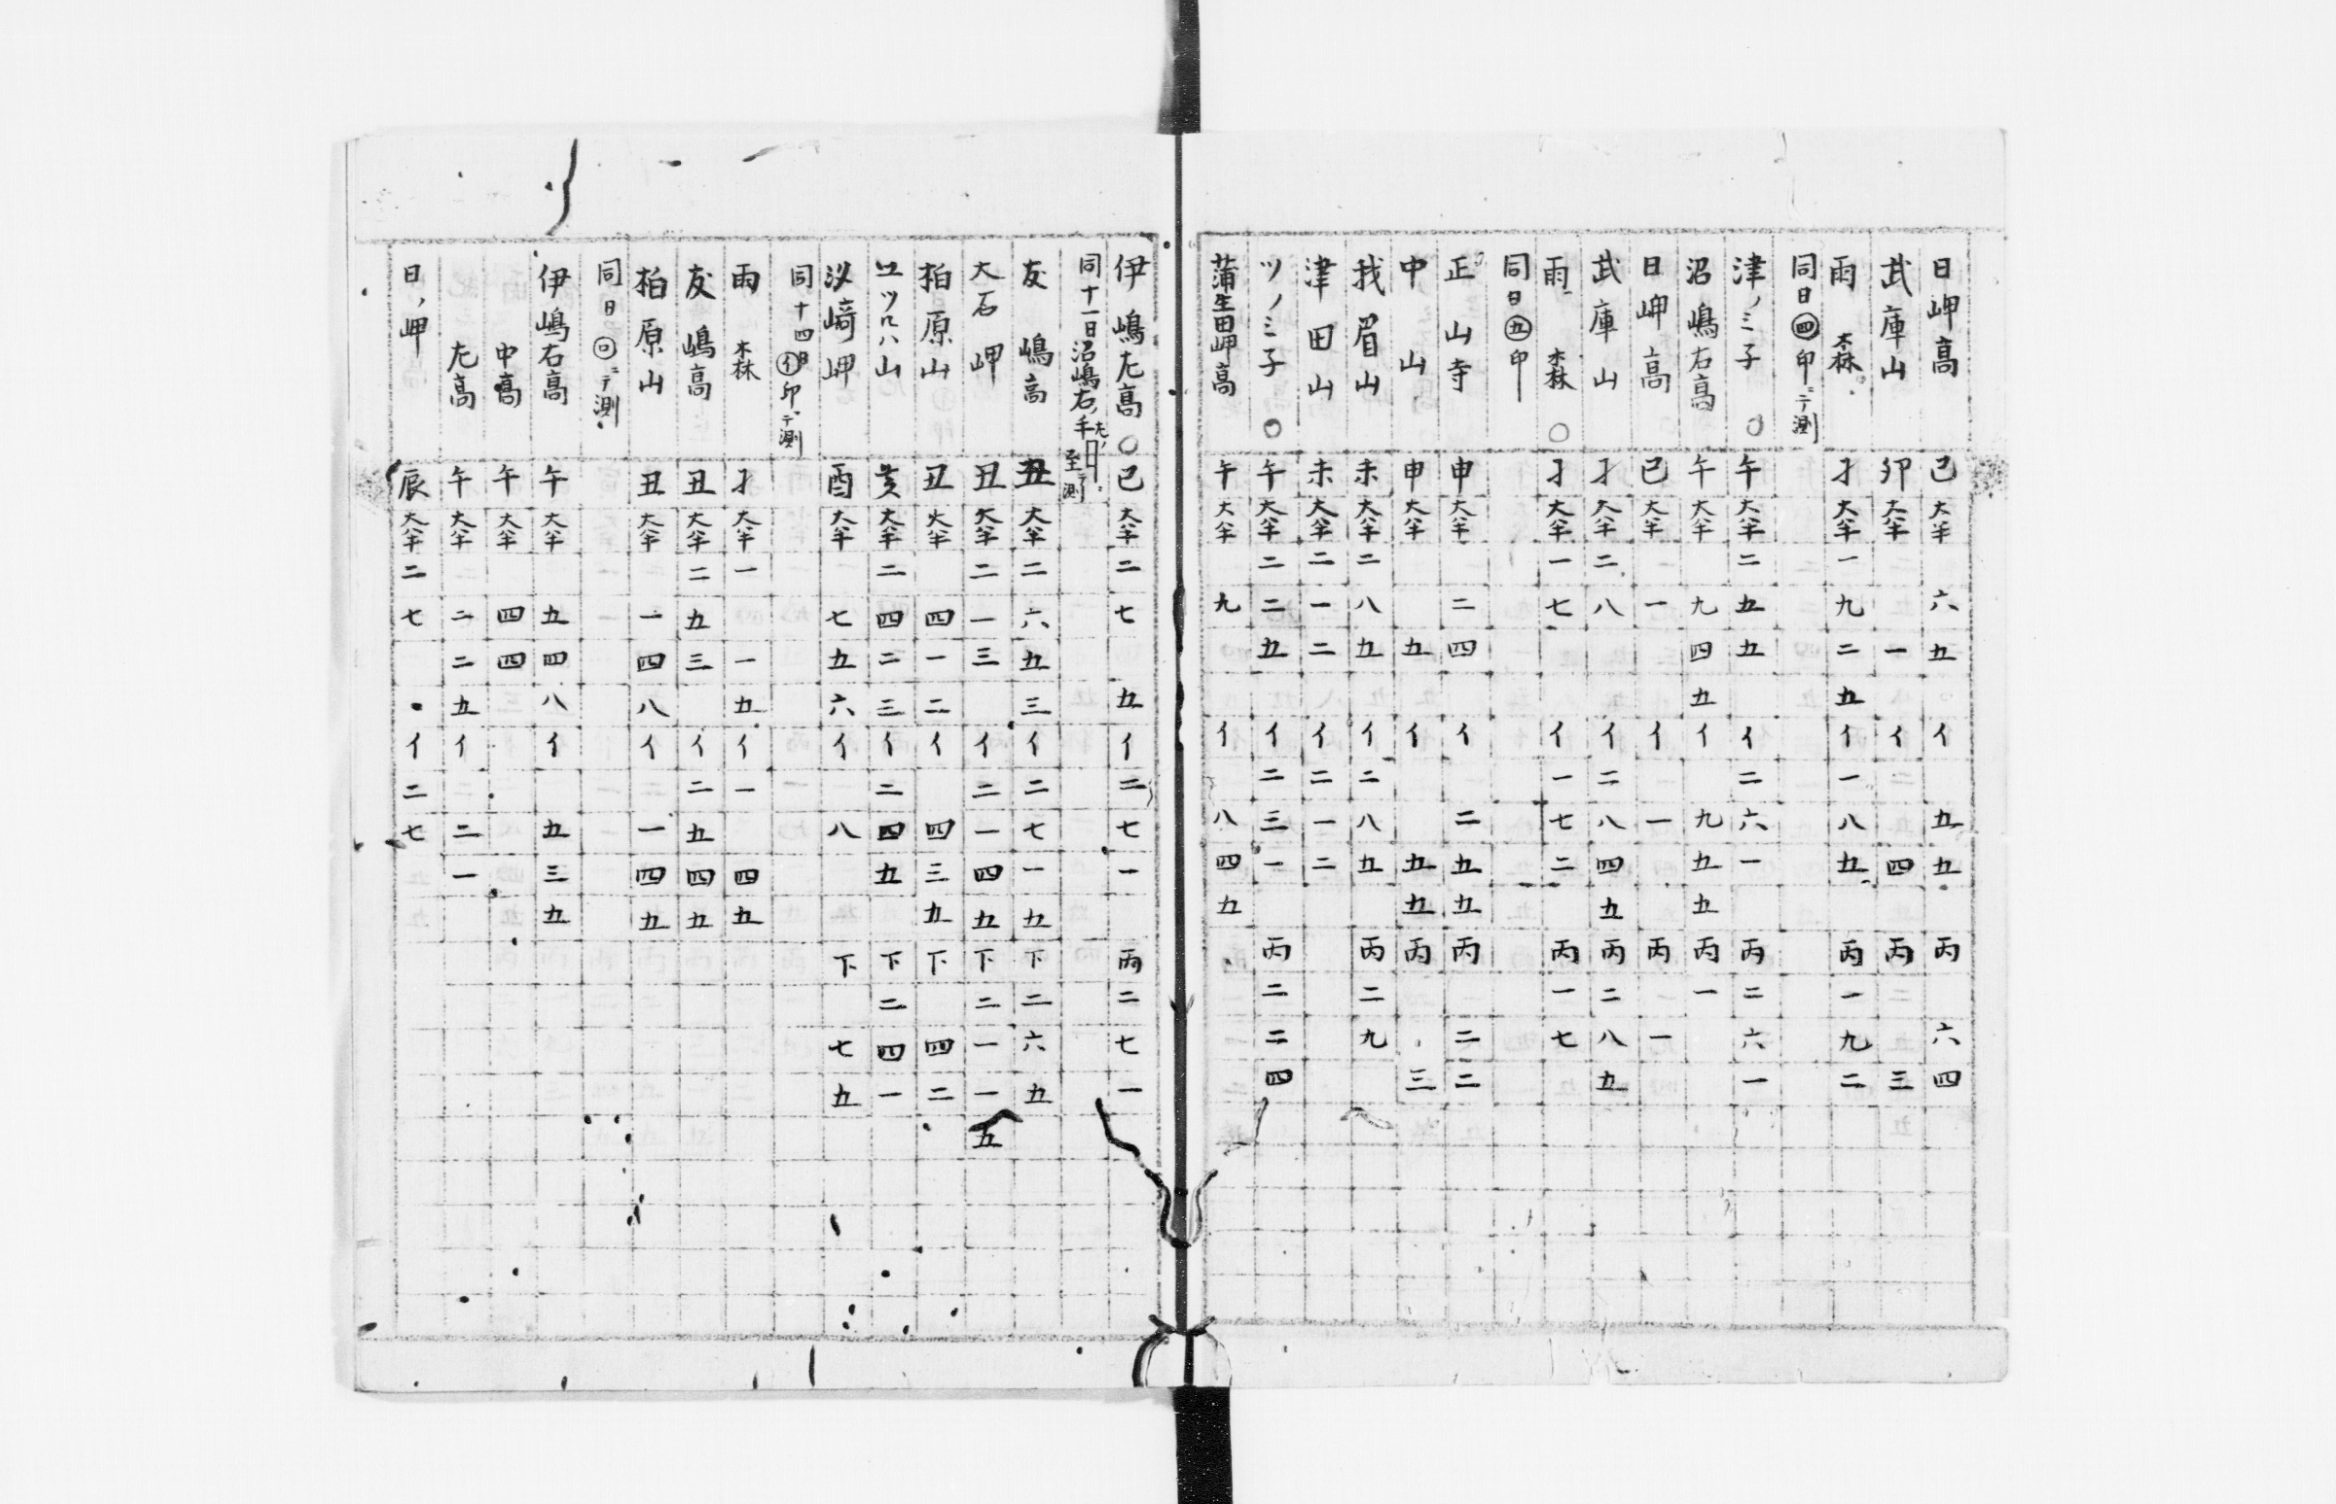 日岬高 巳大半 六五 亻 五五 丙 六四
武庫山 卯大半 一 亻 四 丙 三
雨森 子大半一九二五 亻一八五 丙一九二
同日㊃印ニテ測
津ノミ子○ 午大半二五五 亻二六一 丙二六一
沼嶋右高 午大半 九四五 亻 九五五 丙一
日岬高 巳大半 一 亻 一 丙 一
武庫山 子大半二八 亻二八四五 丙二八五
雨森○ 子大半一七 亻一七二 丙一七
同日㊄印
正山寺 申大半 二四 亻 二五五 丙 二二
中山 申大半 五 亻 五五 丙 三
我眉山 未大半二八五 亻二八五 丙二九
津田山 未大半二一二 亻二一二
ツノミ子○ 午大半二二五 亻二三一 丙二二四
蒲生田岬高 午大半 九 亻 八四五
伊嶋左高○ 巳大半二七 五 亻二七一 丙二七一
同十一日沼嶋右ノ手左ノ 至 測
友嶋高 丑大半二六五三 亻二七一五 下二六五
大石岬 丑大半二一三 亻二一四五 下二一一五
柏原山 丑大半 四一二 亻 四三九 下 四二
山 亥大半二四二三 亻二四五 下二四一
﨑岬 酉大半 七五六 亻 八 下 七五
同十四日㋑印ニテ測
雨森 子大半一 一五 亻一 四五
友嶋高 丑大半二五三 亻二五四五
柏原山 丑大半 一四八 亻 一四五
同日㋺ニテ測
伊嶋右高 午大半 五四八 亻 五三五
中高 午大半 四四
左高 午大半 二二五 亻 二一
日ノ岬 辰大半二七 亻二七